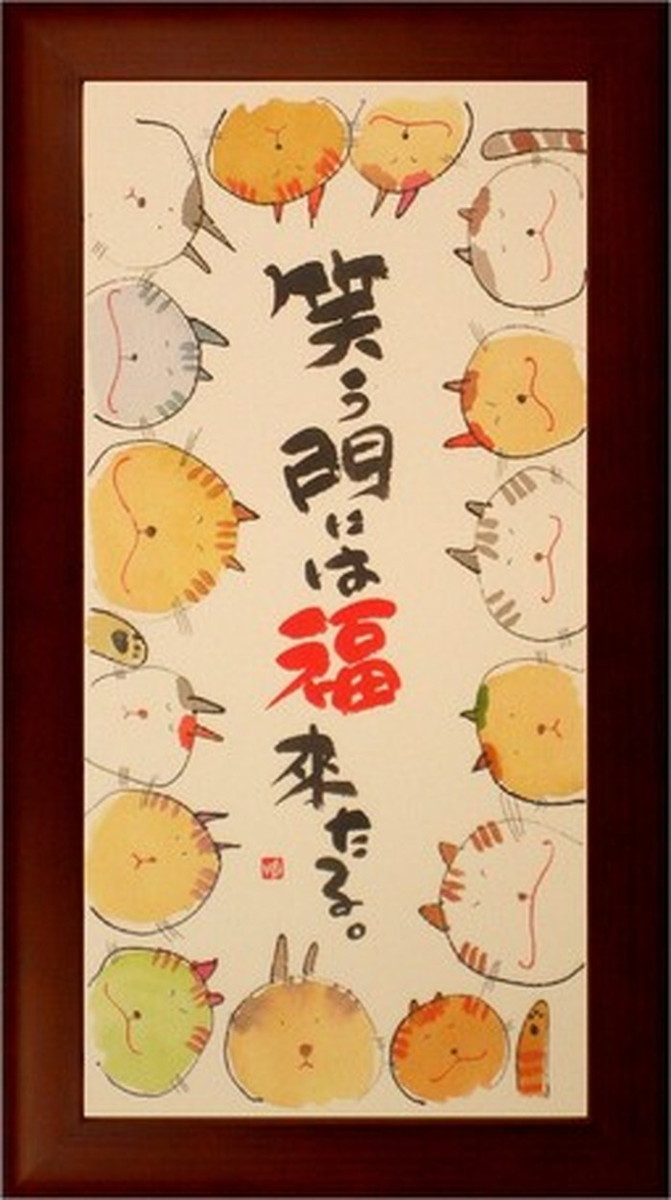 笑う門には福來たる。